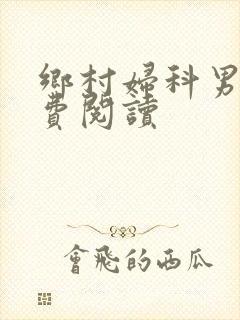 鄉村婦科男
費閱讀
會飛的西瓜